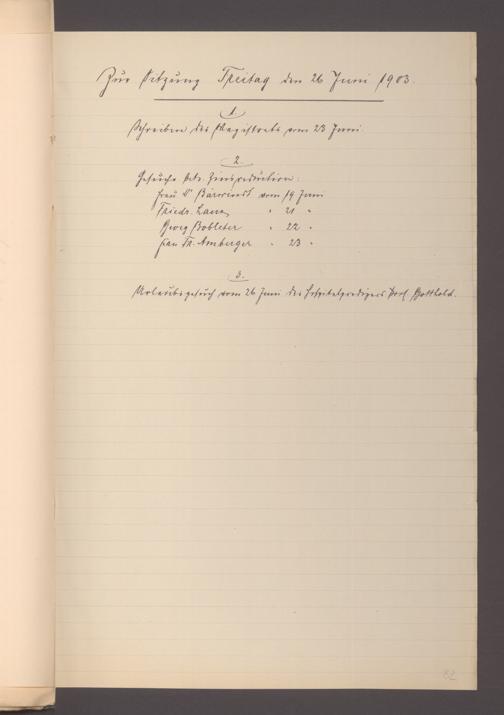 Zur Sitzung Freitag den 26 Juni 1903.
1.
Schreiben des Magistrats vom 23 Juni
2.
Gesuche betr. Zinsreduction:
Frau D. Bärwindt vom 19 Juni
Friedr. Lang " 21 "
Georg Bobleter " 22 "
Frau Fr. Amberger " 23 "
3.
Urlaubsgesuch vom 26 Juni des Hospitalpredigers Prof. Botthold.
62